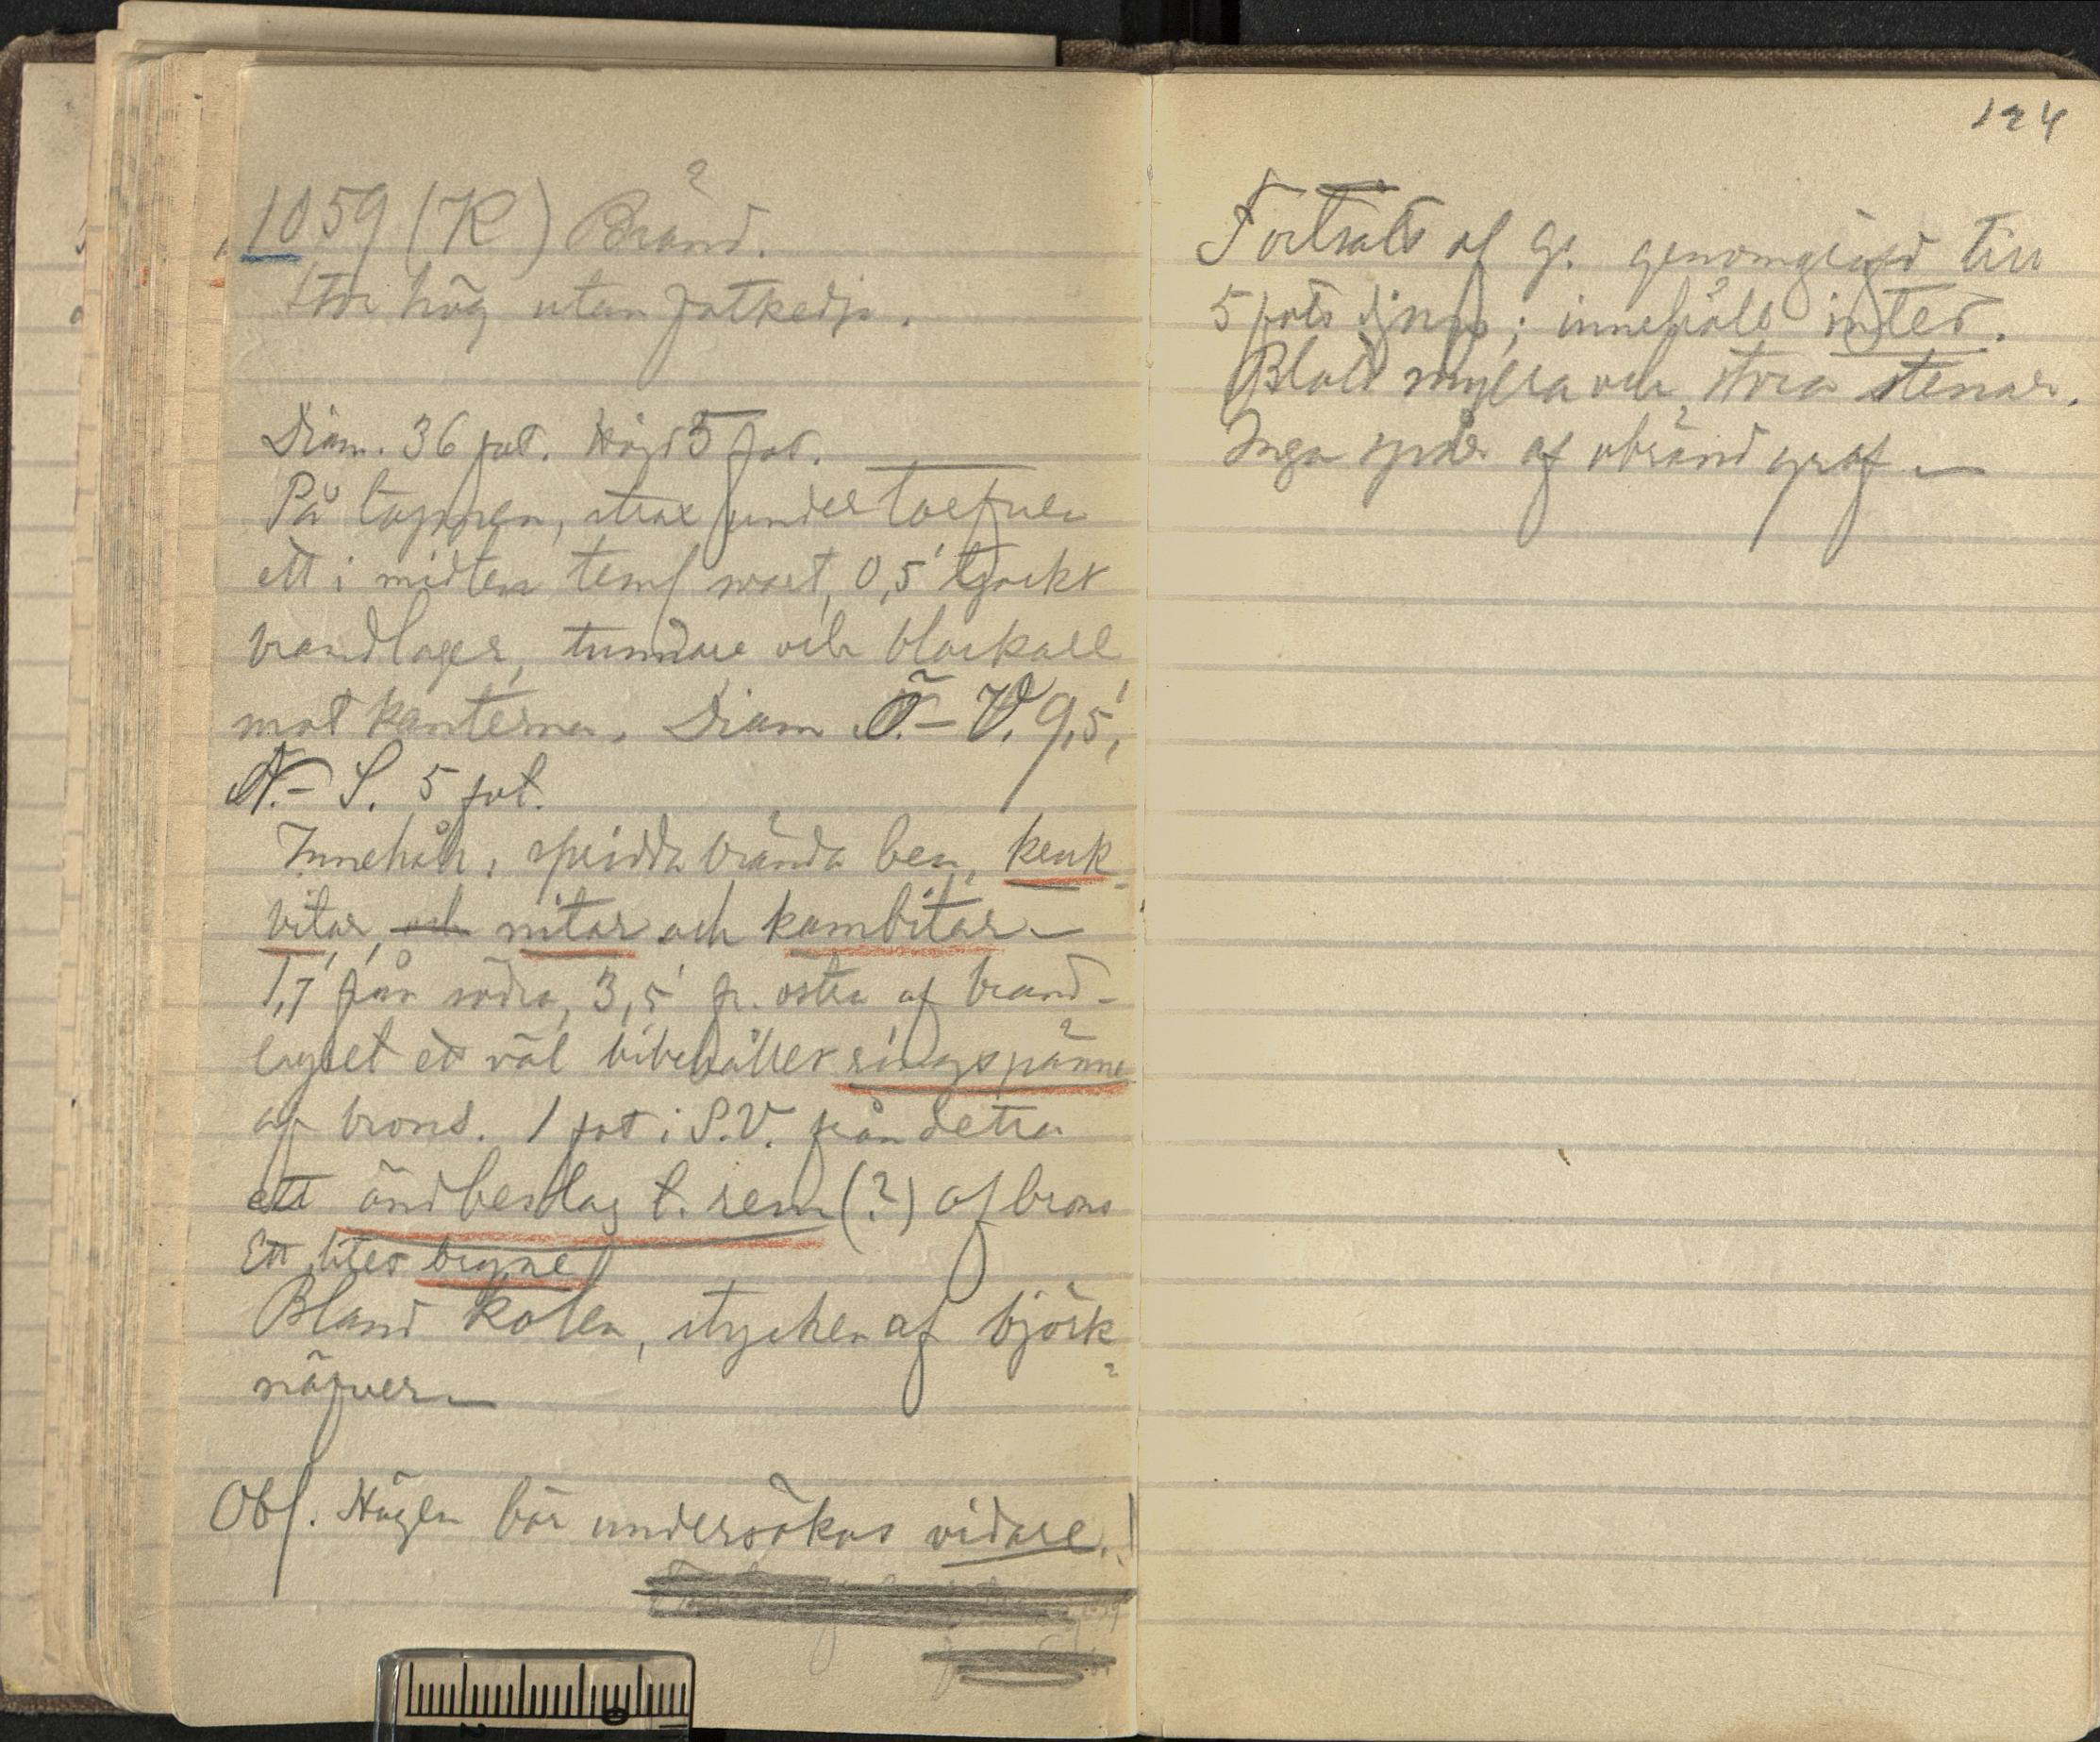 1059 (K) Bränd.
Stor hög utan fotkedja.
Diam. 36 fot. Höjd 5 fot.
På toppen, strax under torfven
ett i midten teml. svart, 0,5' tjockt
brandlager, tunnare och
mot kanterna. Diam Ö.–V. 9,5',
N.–S. 5 fot.
Innehöll: spridda brända ben, kruk-
bitar, och nitar och kambitar –
1,7' från södra, 3,5' fr. östra af brand-
lagret ett väl bibehållet ringspänne
af brons. 1 fot i S.V. från detta
ett ändbeslag t. rem (?) af brons
Ett litet bryne
Bland kolen, stycken af björk-
näfver –
Obs. Högen bör undersökas vidare.!
124
Fortsatt af G. genomgräfd till
5 fots djup; innehöll intet.
Blott mylla och stora stenar.
Inga spår af obränd graf –